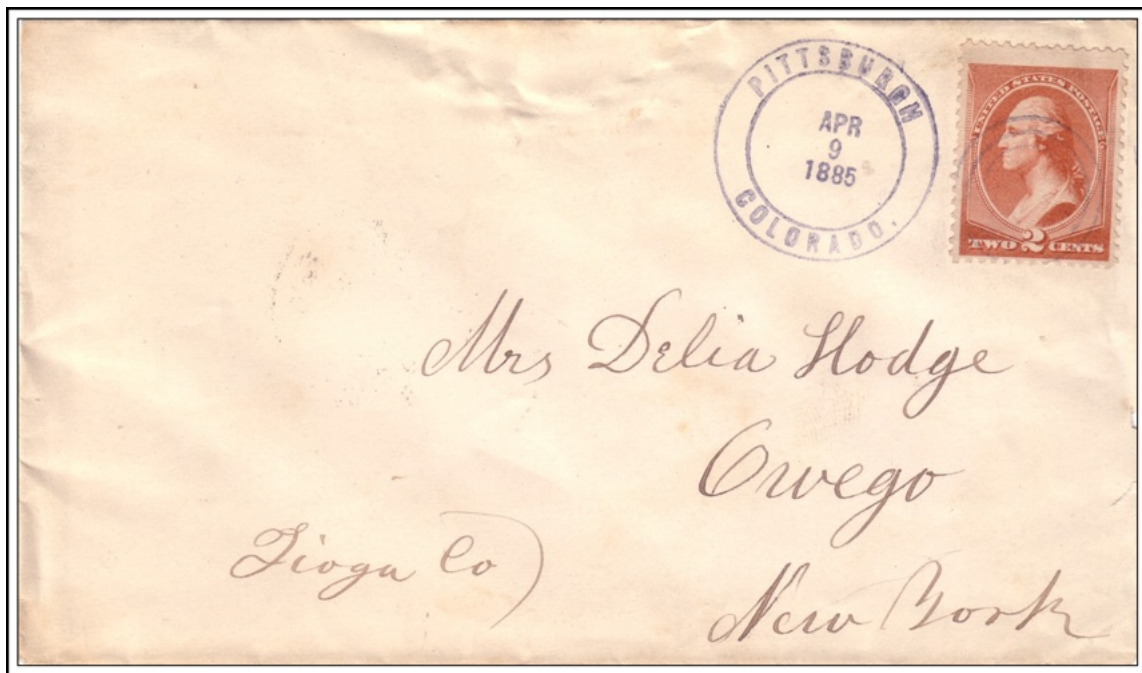 PITTSBURGH
APR
9
1885
COLORADO.
UNITED STATES POSTAGE
TWO 2 CENTS
Mrs Delia Hodge
Owego
Tioga Co
New York